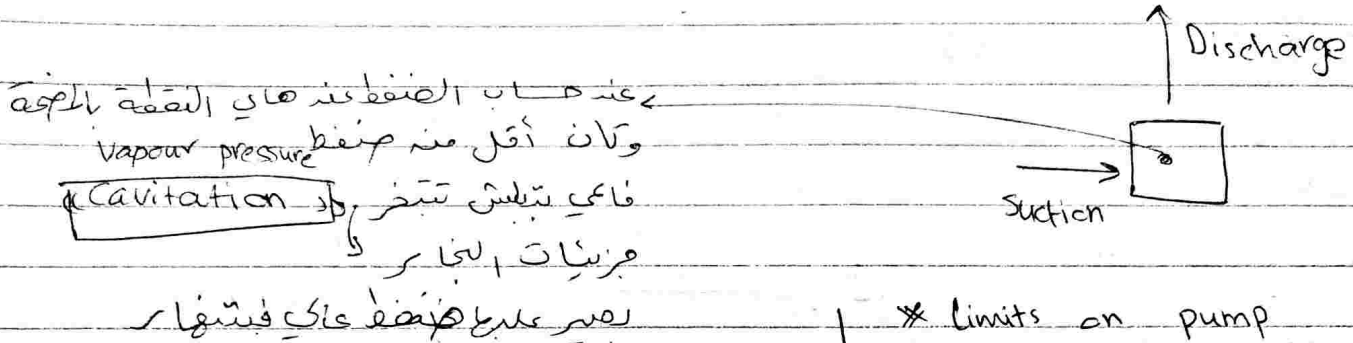 Discharge
Suction
عند حساب الضغط عند هاي النقطة بالمضخة
وكان أقل من ضغط vapour pressure
فالمي بتبلش تتبخر Cavitation
جزيئات البخار
بصير عليها ضغط عالي فبتنهار
* limits on pump